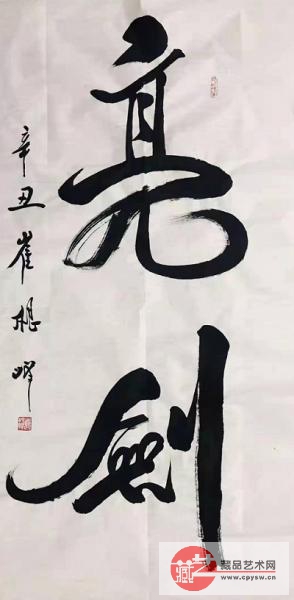 亮剑
辛丑 崔
藏品艺术网
www.cpysw.cn